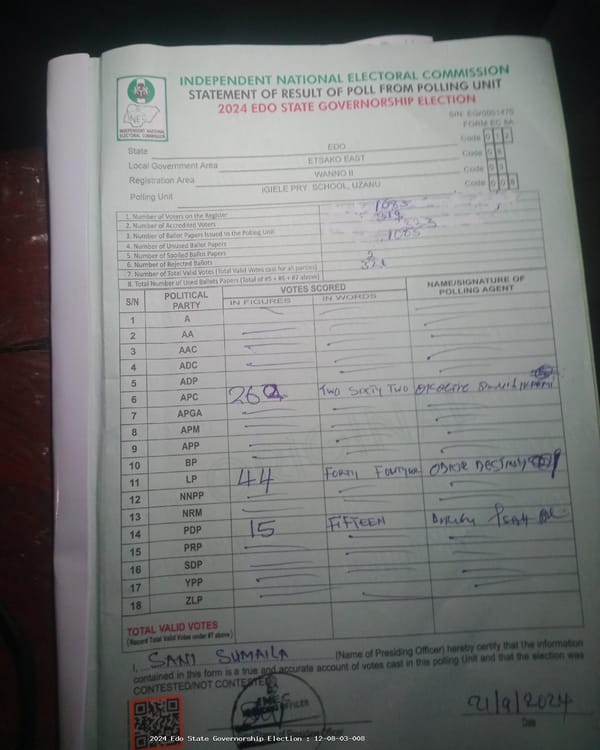 INDEPENDENT NATIONAL ELECTORAL COMMISSION
STATEMENT OF RESULT OF POLL FROM POLLING UNIT
2024 EDO STATE GOVERNORSHIP ELECTION
INEC
INDEPENDENT NATIONAL ELECTORAL COMMISSION
FORM EC 8A
State EDO Code 1 2
Local Government Area ETSAKO EAST Code
Registration Area WANNO II Code
Polling Unit IGIELE PRY. SCHOOL, UZANU Code
1. Number of Voters on the Register
2. Number of Accredited Voters
3. Number of Ballot Papers Issued to the Polling Unit
4. Number of Unused Ballot Papers
5. Number of Spoiled Ballot Papers
6. Number of Rejected Ballots
7. Number of Total Valid Votes (Total Valid Votes cast for all parties)
8. Total Number of Used Ballots Papers (Total of #5 + #6 + #7 above)
S/N POLITICAL PARTY VOTES SCORED NAME/SIGNATURE OF POLLING AGENT
IN FIGURES IN WORDS
1 A
2 AA
3 AAC
4 ADC
5 ADP
6 APC 262 TWO SIXTY TWO
7 APGA
8 APM
9 APP
10 BP
11 LP 44 FORTY
12 NNPP
13 NRM
14 PDP 15 FIFTEEN
15 PRP
16 SDP
17 YPP
18 ZLP
TOTAL VALID VOTES
(Record Total Valid Votes under #7 above)
I, SANI SUMAILA (Name of Presiding Officer) hereby certify that the information
contained in this form is a true and accurate account of votes cast in this polling Unit and that the election was
CONTESTED/NOT CONTESTED
21/9/2024
Date
2024 Edo State Governorship Election : 12-08-03-008